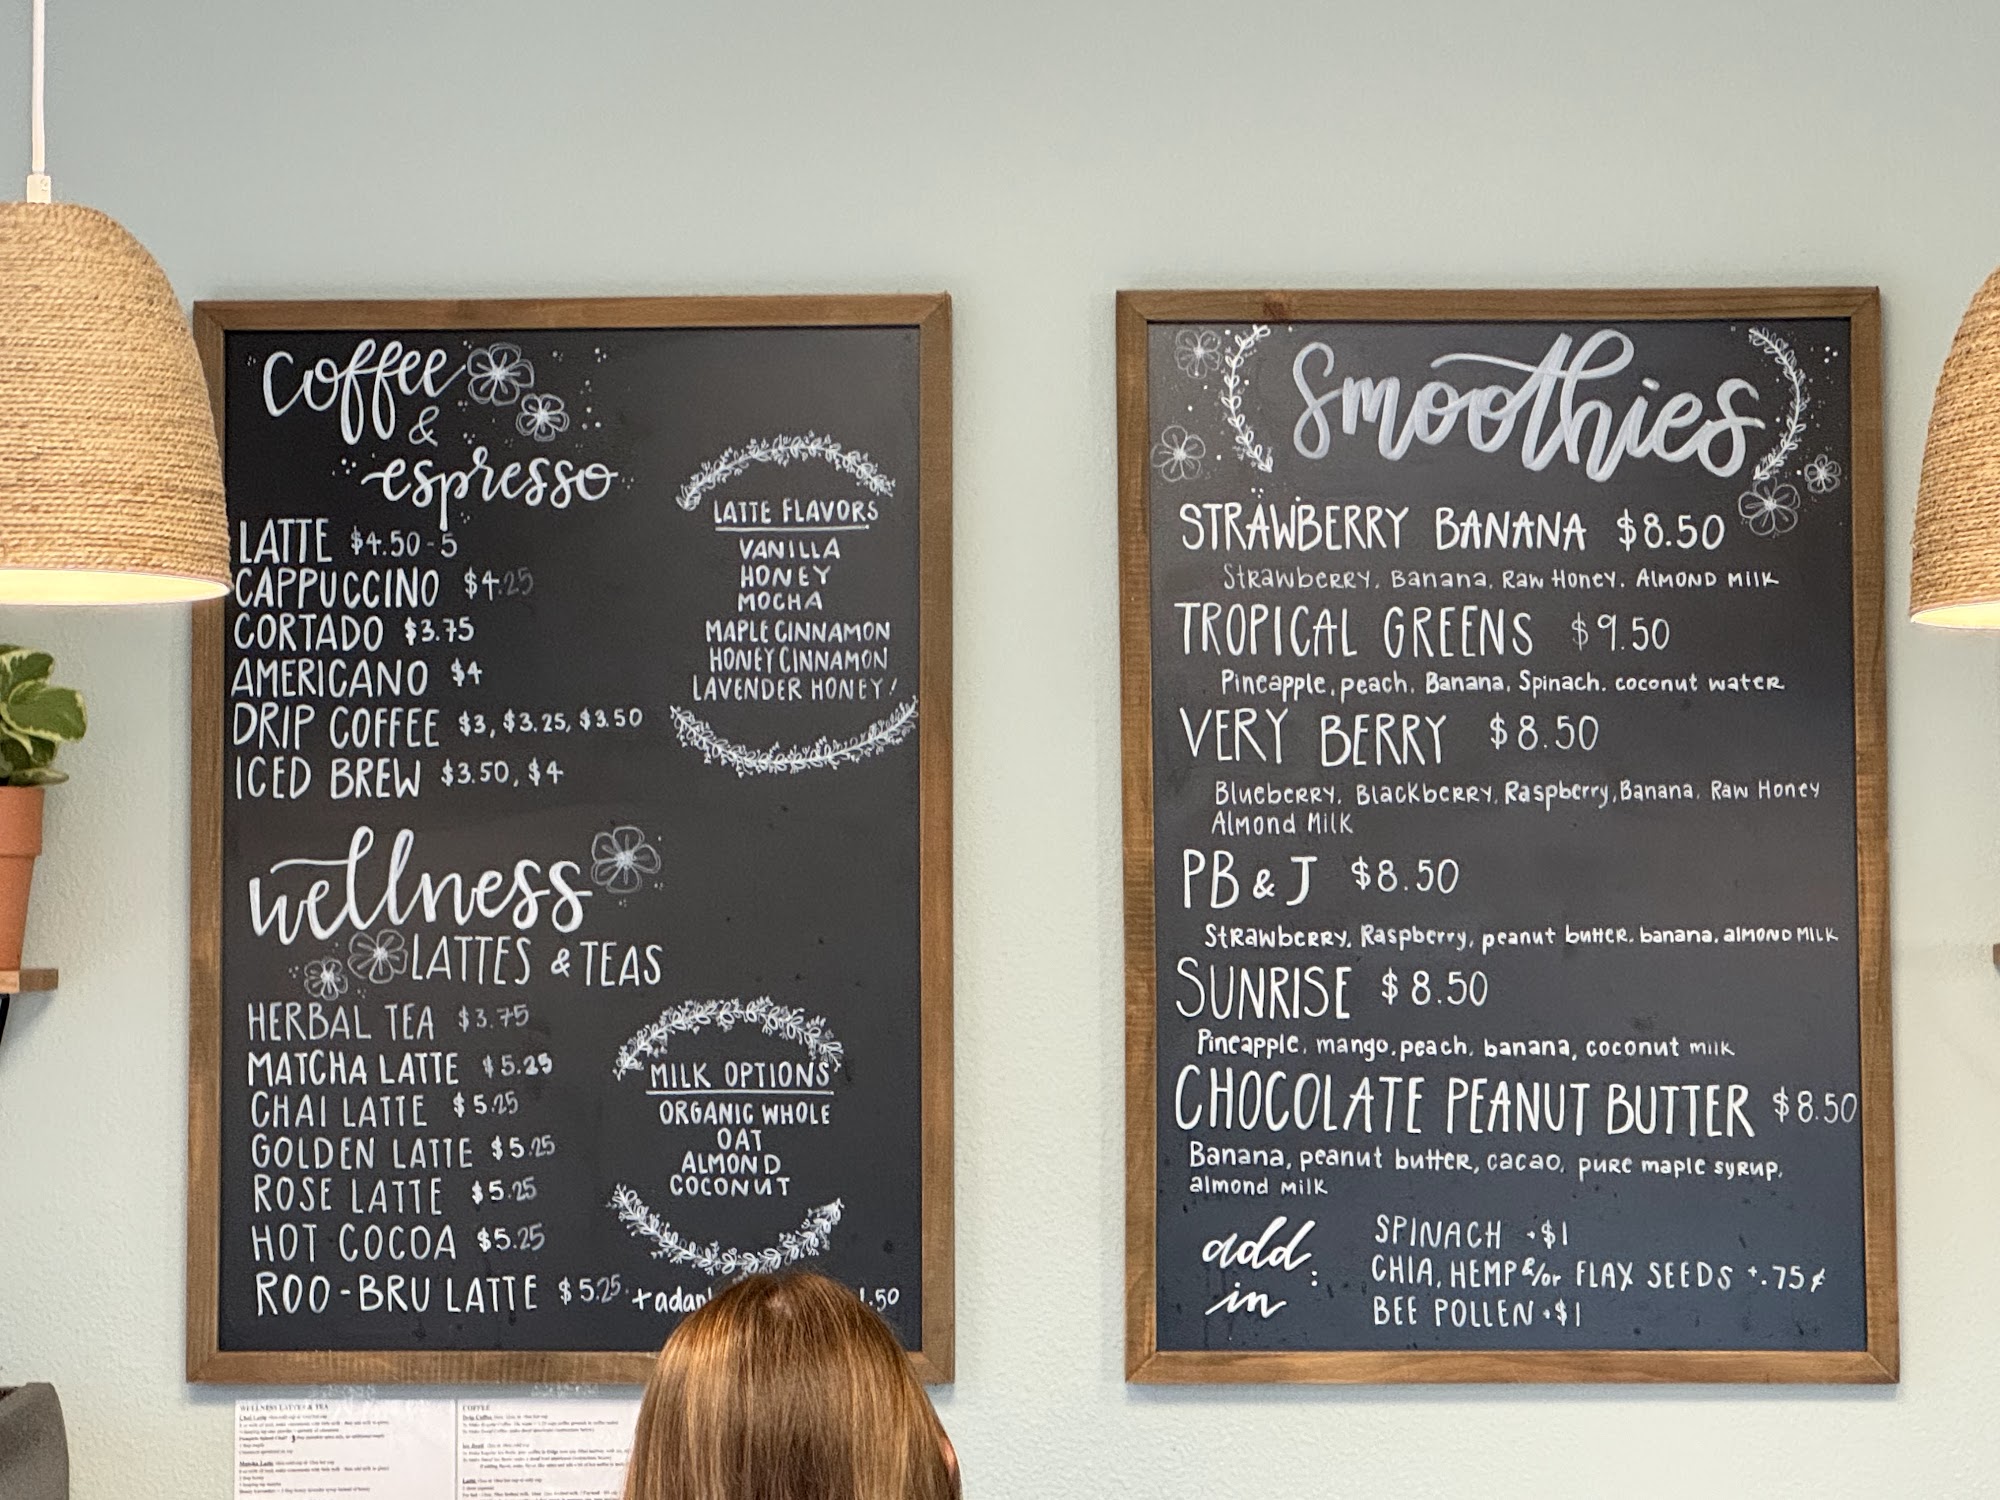 coffee
&
espresso
LATTE $4.50-5
CAPPUCCINO $4.25
CORTADO $3.75
AMERICANO $4
DRIP COFFEE $3, $3.25, $3.50
ICED BREW $3.50, $4
LATTE FLAVORS
VANILLA
HONEY
MOCHA
MAPLE CINNAMON
HONEY CINNAMON
LAVENDER HONEY!
wellness
LATTES & TEAS
HERBAL TEA $3.75
MATCHA LATTE $5.25
CHAI LATTE $5.25
GOLDEN LATTE $5.25
ROSE LATTE $5.25
HOT COCOA $5.25
ROO-BRU LATTE $5.25
MILK OPTIONS
ORGANIC WHOLE
OAT
ALMOND
COCONUT
WELLNESS LATTES & TEA
COFFEE
smoothies
STRAWBERRY BANANA $8.50
Strawberry, Banana, Raw Honey, Almond Milk
TROPICAL GREENS $9.50
Pineapple, peach, Banana, Spinach, coconut water
VERY BERRY $8.50
Blueberry, Blackberry, Raspberry, Banana, Raw Honey
Almond Milk
PB & J $8.50
Strawberry, Raspberry, peanut butter, banana, almond milk
SUNRISE $8.50
Pineapple, mango, peach, banana, coconut milk
CHOCOLATE PEANUT BUTTER $8.50
Banana, peanut butter, cacao, pure maple syrup,
almond milk
add in:
SPINACH +$1
CHIA, HEMP &/or FLAX SEEDS +.75¢
BEE POLLEN +$1